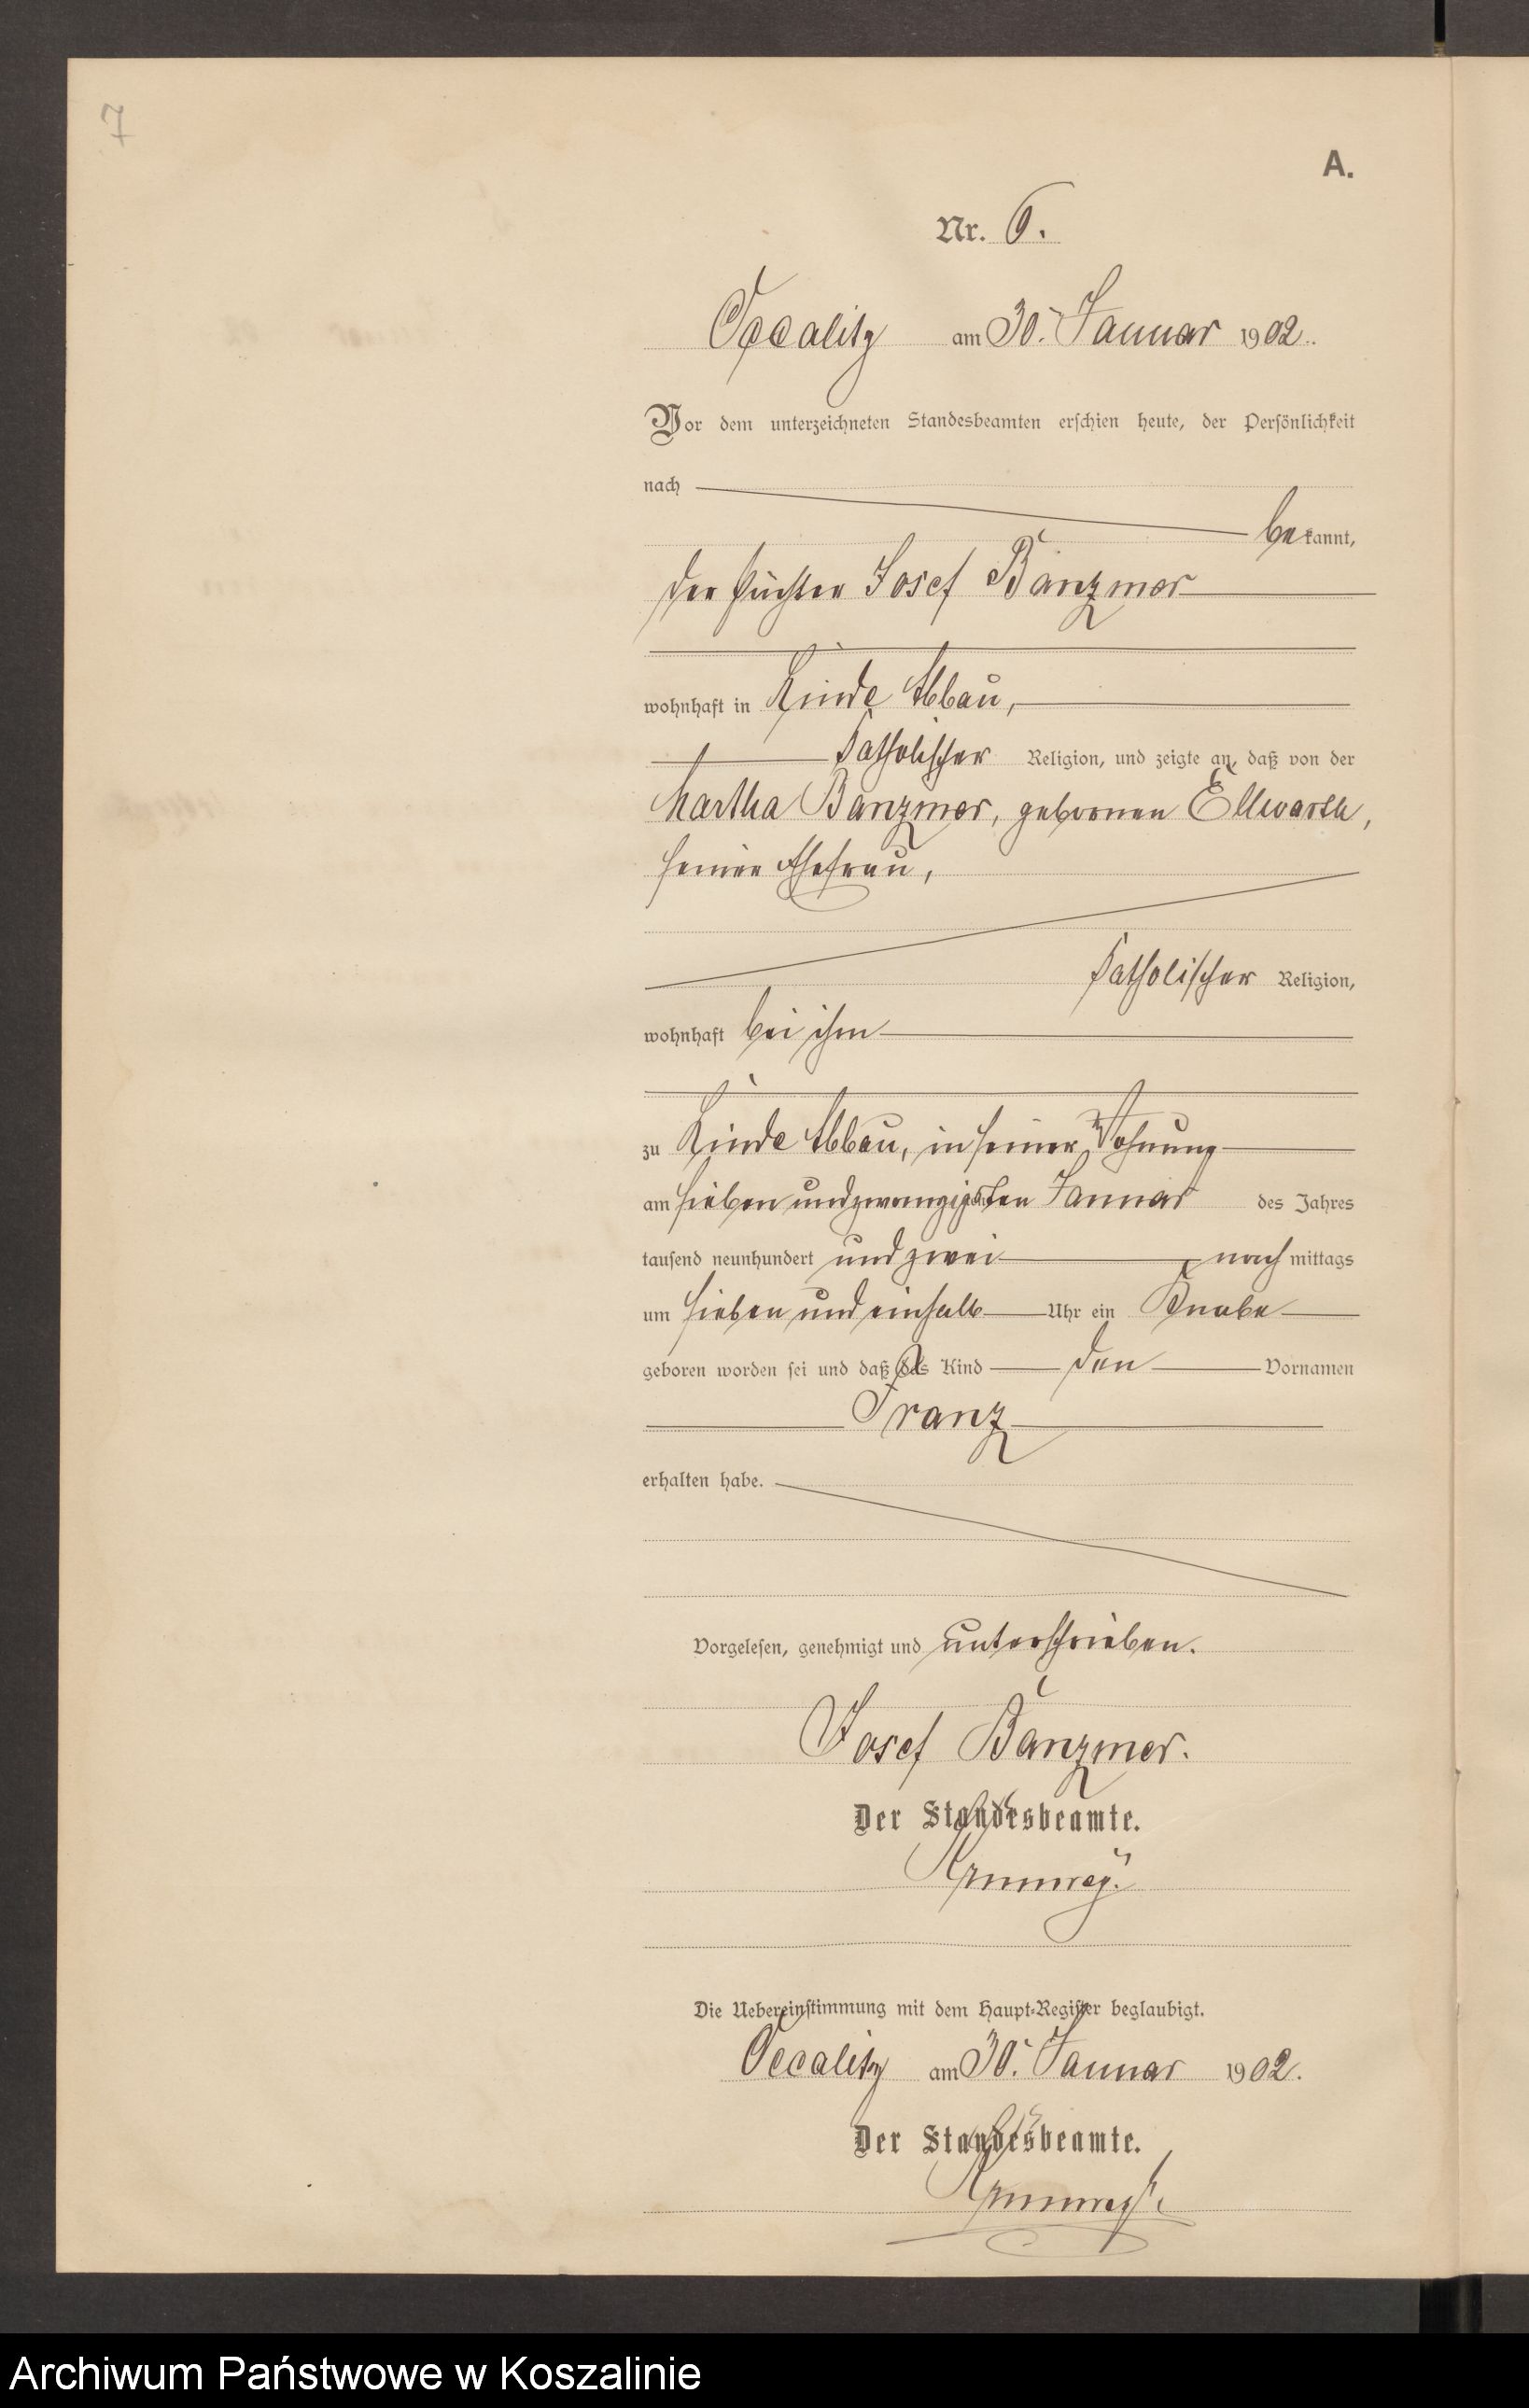 7
A.
Nr. 6.
Occalitz am 30. Januar 1902.
Vor dem unterzeichneten Standesbeamten erschien heute, der Persönlichkeit
nach
bekannt,
der Pächter Josef Banzmer
wohnhaft in Linde Abbau,
katholischer Religion, und zeigte an, daß von der
Martha Banzmer, geborenen Ellwarth,
seiner Ehefrau,
katholischer Religion,
wohnhaft bei ihm
zu Linde Abbau, in seiner Wohnung
am sieben und zwanzigsten Januar des Jahres
tausend neunhundert und zwei nach mittags
um sieben und einhalb Uhr ein Knabe
geboren worden sei und daß das Kind den Vornamen
Franz
erhalten habe.
Vorgelesen, genehmigt und unterschrieben.
Josef Banzmer.
Der Standesbeamte.
Die Uebereinstimmung mit dem Haupt-Register beglaubigt.
Occalitz am 30. Januar 1902.
Der Standesbeamte.
Archiwum Państwowe w Koszalinie